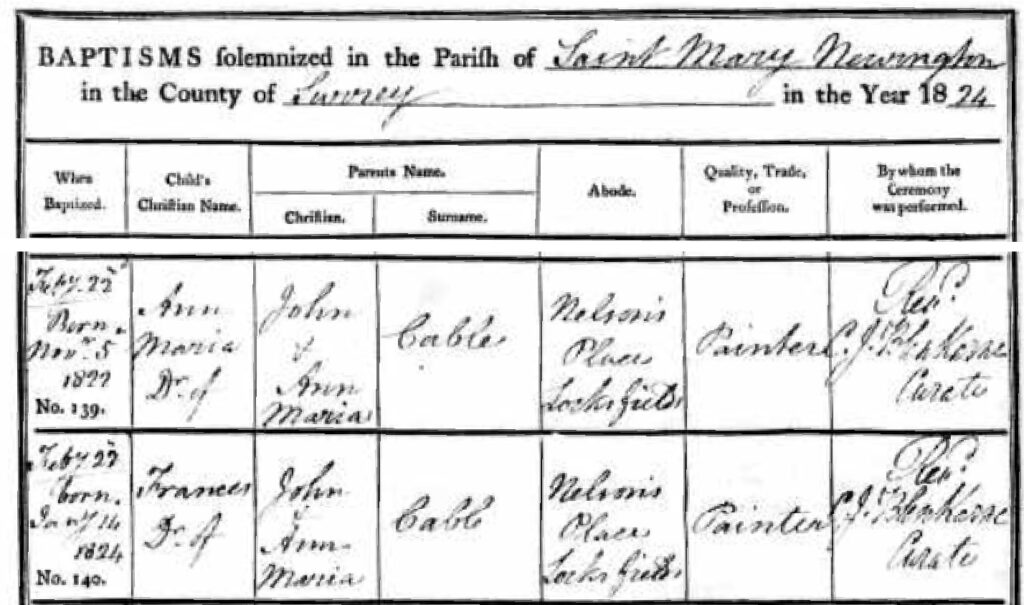 BAPTISMS solemnized in the Parish of Saint Mary Newington
in the County of Surrey in the Year 1824
When Baptized.
Child's Christian Name.
Parents Name.
Christian.
Surname.
Abode.
Quality, Trade, or Profession.
By whom the Ceremony was performed.
Feby. 22d
Born
Novr. 5
1822
No. 139.
Ann
Maria
Dr. of
John
&
Ann
Maria
Cable
Nelson's
Place
Locksfields
Painter
Revd.
C. J.
Curate
Feby 22d
born
Jany 14
1824
No. 140.
Frances
Dr. of
John
&
Ann
Maria
Cable
Nelson's
Place
Locks fields
Painter
Revd.
C. J.
Curate